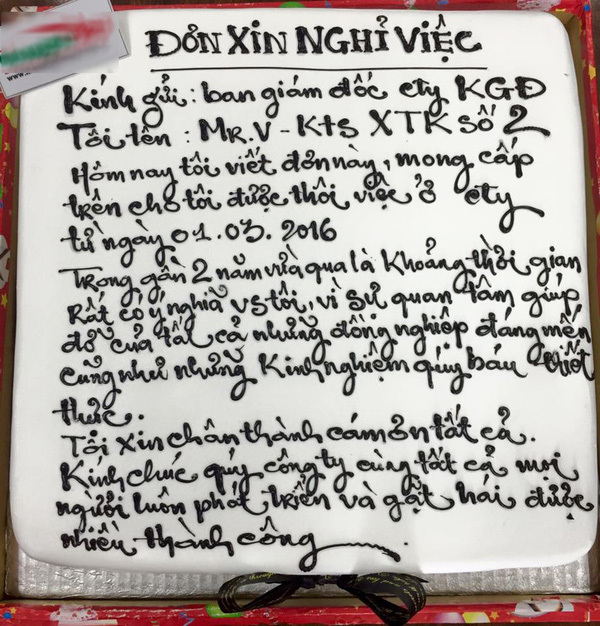 ĐƠN XIN NGHỈ VIỆC
Kính gửi: ban giám đốc cty KGĐ
Tôi tên: MR.V - Kts XTK số 2
Hôm nay tôi viết đơn này, mong cấp
trên cho tôi được thôi việc ở cty
từ ngày 01.03.2016
Trong gần 2 năm vừa qua là khoảng thời gian
Rất có ý nghĩa vs tôi, vì sự quan tâm giúp
đỡ của tất cả những đồng nghiệp đáng mến
cũng như những Kinh nghiệm quý báu thiết
thực.
Tôi xin chân thành cám ơn tất cả.
Kính chúc quý công ty cùng tất cả mọi
người luôn phát triển và gặt hái được
nhiều thành công.
www.